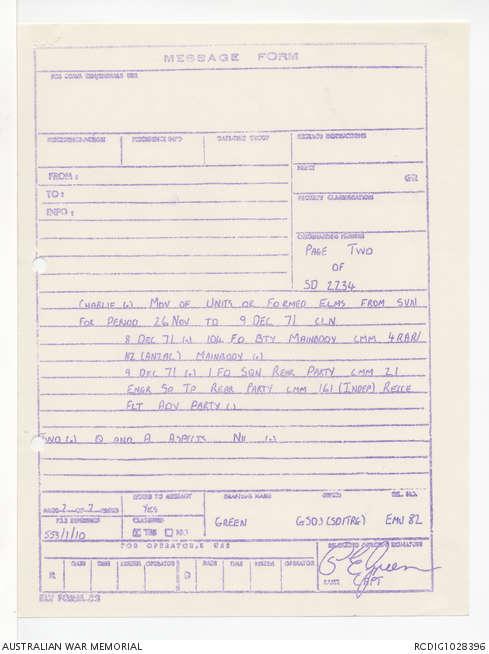 MESSAGE FORM
PRECEDENCE-ACTION
PRECEDENCE-INFO
DATE-TIME GROUP
MESSAGE INSTRUCTIONS
FROM:
PREFIX
GR
TO:
SECURITY CLASSIFICATION
INFO:
ORIGINATORS NUMBER
PAGE TWO
OF
SD 2234
CHARLIE (.) MOV OF UNITS OR FORMED ELMS FROM SVN
FOR PERIOD 26 NOV TO 9 DEC 71 CLN
8 DEC 71 (.) 104 FD BTY MAINBODY CMM 4RAR/
NZ (ANZAC) MAINBODY (.)
9 DEC 71 (.) 1 FD SQN REAR PARTY CMM 21
ENGR SP TP REAR PARTY CMM 161 (INDEP) RECCE
FLT ADV PARTY (.)
TWO (.) Q AND A ASPECTS NIL (.)
PAGE 2 OF 2 PAGES
REFERS TO MESSAGE
YES
DRAFTERS NAME
OFFICE
TEL. NO.
FILE REFERENCE
CLASSIFIED
553/1/10
YES NO
GREEN
GSO3 (SD/TRG)
EMU 82
FOR OPERATOR'S USE
RELEASING OFFICERS SIGNATURE
R
DATE
TIME
SYSTEM
OPERATOR
D
DATE
TIME
SYSTEM
OPERATOR
RANK CAPT
AUSTRALIAN WAR MEMORIAL
RCDIG1028396